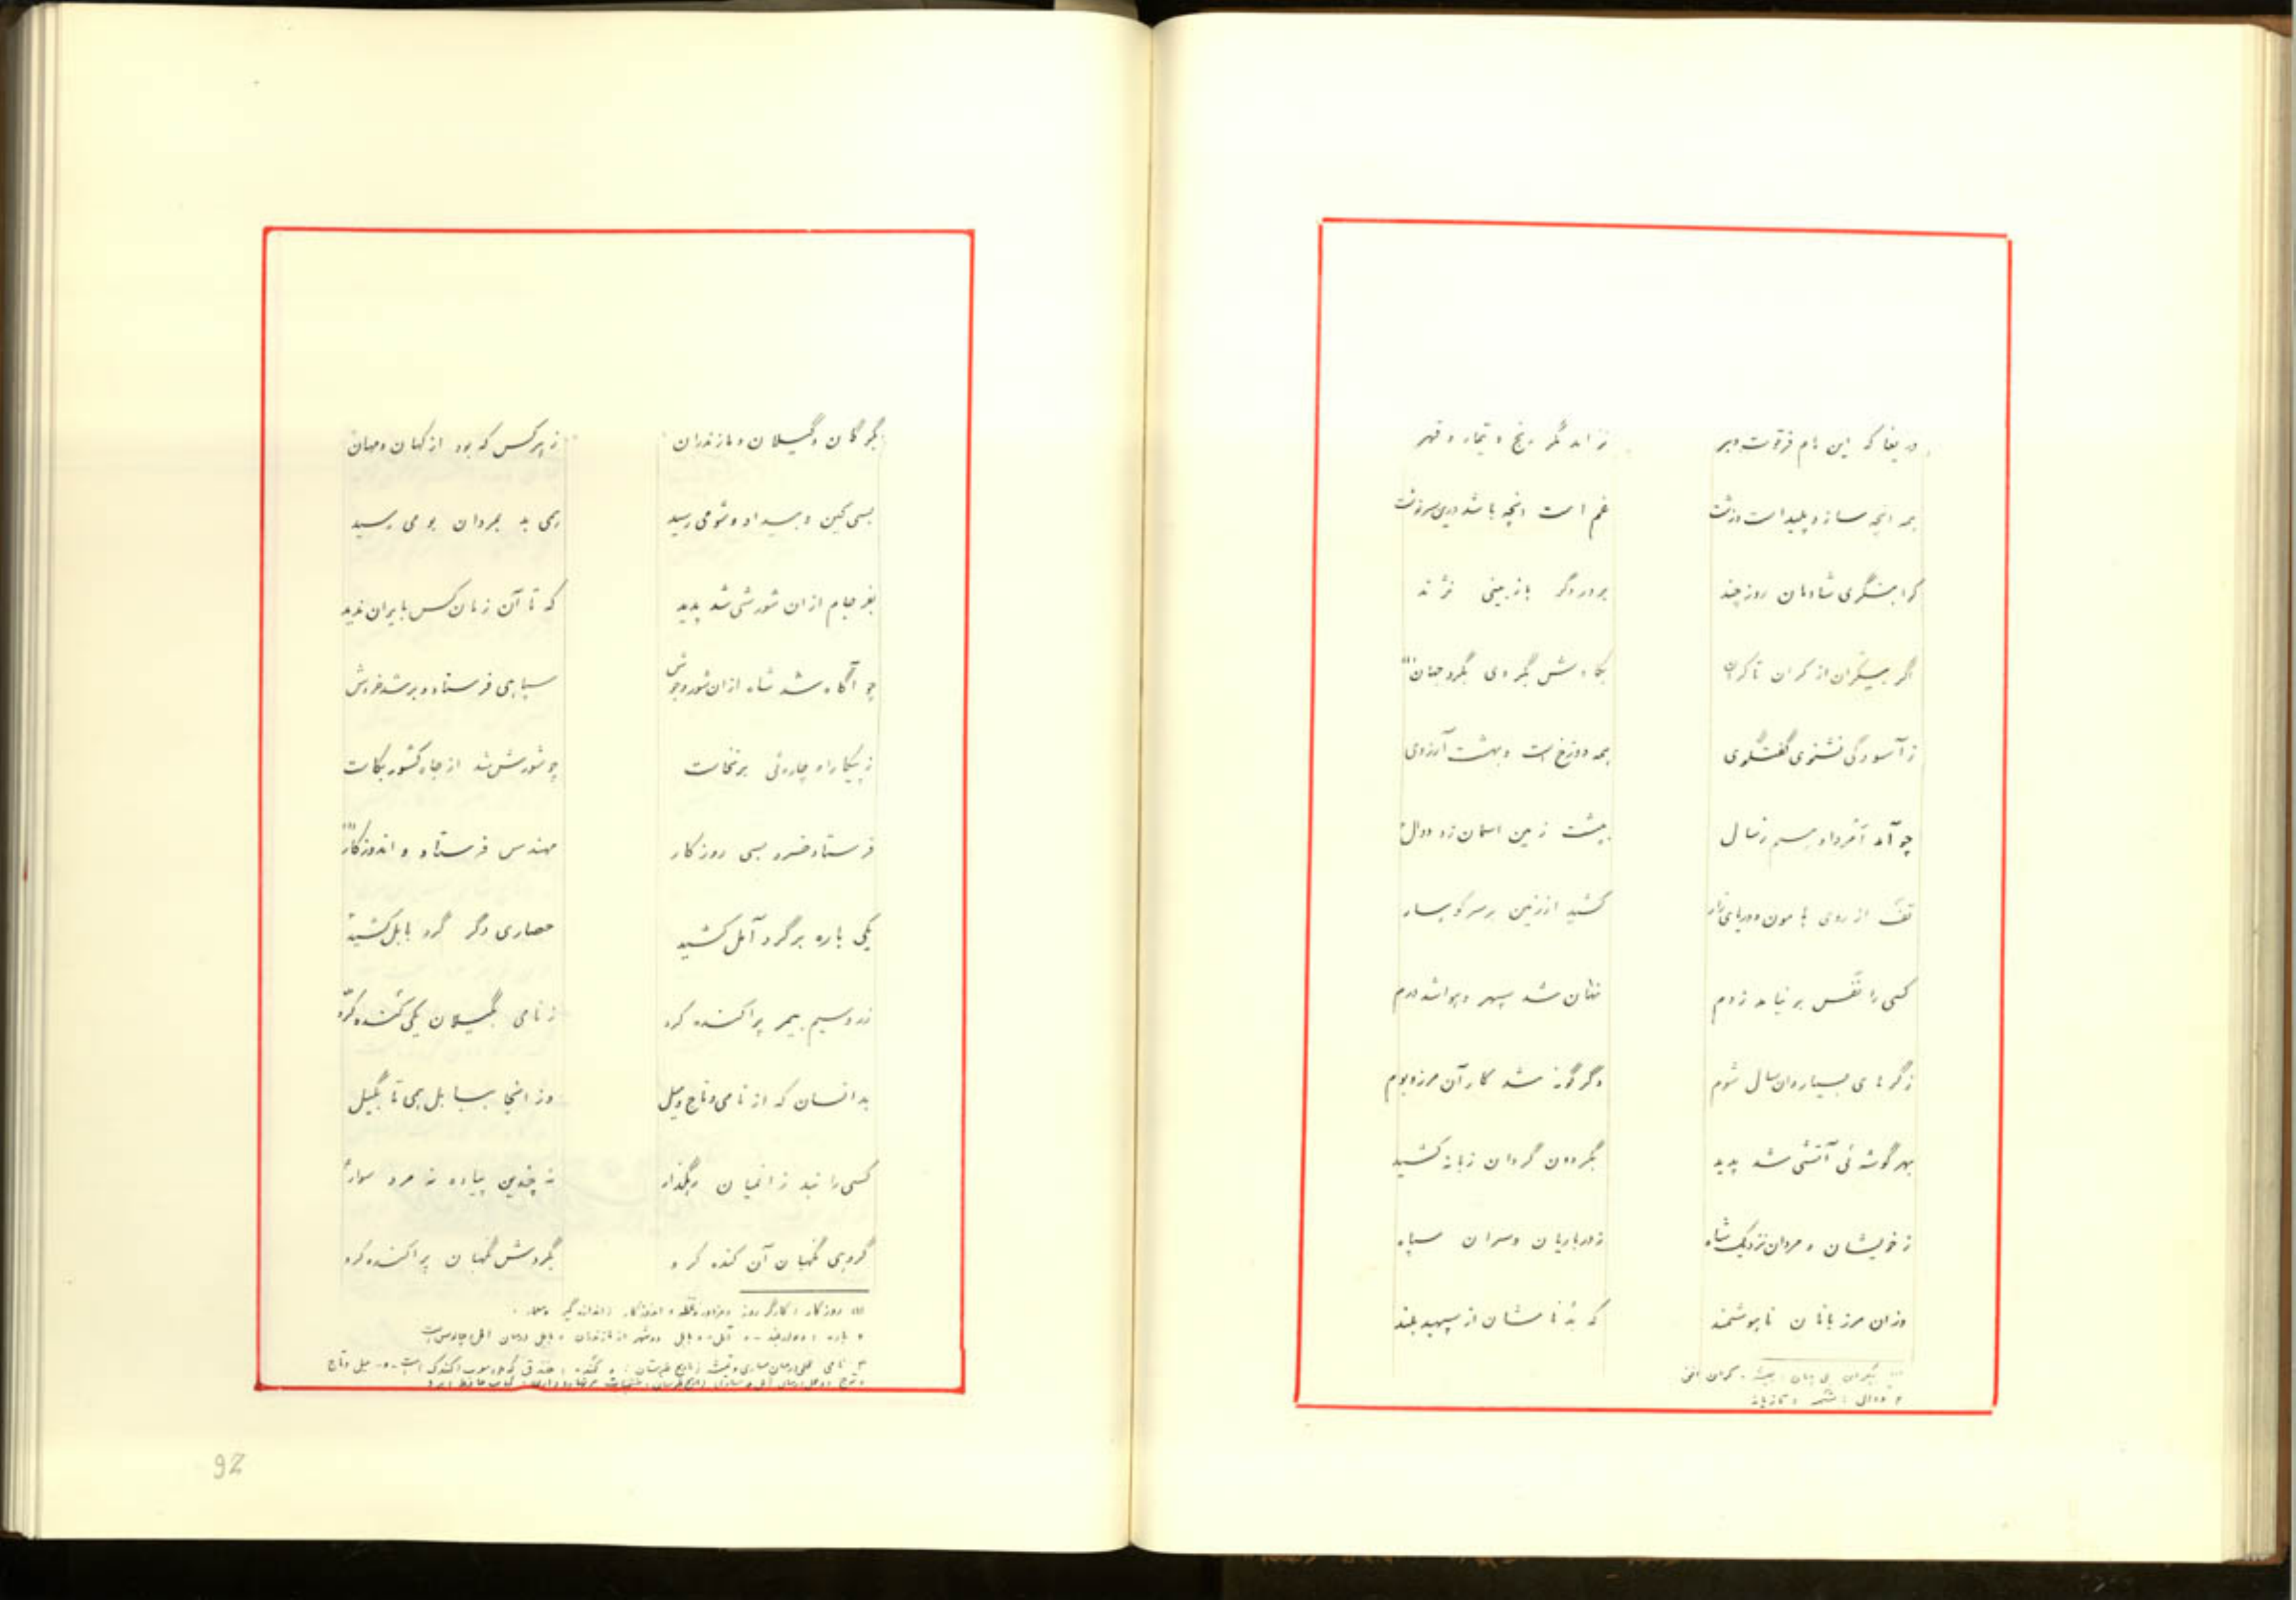 دریغا که این مام فرتوت و پیر نزاید مگر رنج و تیمار و قهر
همه انچه سازد پلید است و زشت غم است انچه باشد درین سرنوشت
کرا بنگری شادمان روز چند بروز دگر باز بینی نژند
اگر بیکران از کران تا کران بکاوش بگردی بگرد جهان (۱)
ز آسودگی نشنوی گفتگوی همه دوزخ است و بهشت آرزوی
چو آمد امرداد سیم ز سال بپشت زمین اسمان زد دوال ۲
تف از روی هامون و دریای زار کشید از زمین بر سر کوهسار
کسی را نفس بر نیامد ز دم نهان شد سپهر و هوا شد دژم
ز گرمای بسیار و ان سال شوم دگرگونه شد کار آن مرز و بوم
بهر گوشه ئی آتشی شد پدید بگردون گردان زبانه کشید
ز خویشان و مردان نزدیک شاه ز درباریان و سران سپاه
وزان مرزبانان ناهوشمند که بد نامشان از سپهبد بلند
(۱) بیکران بی پایان کران افق
۲ دوالی : تازیانه
بگرگان و گیلان و مازندران ز هر کس که بود از کهان و مهان
بسی کین و بیداد و شومی رسید همی بد بمردان بومی رسید
بفرجام ازان شورشی شد پدید که تا آن زمان کس بایران ندید
چو آگاه شد شاه ازان شور و جوش سپاهی فرستاد و بر شد خروش
ز پیکار او چاره ئی برنخاست چو شورش شد از جاه کشور بکاست
فرستاد خسرو بسی روزکار مهندس فرستاد و اندوزکار (۱)
یکی باره بر گرد آمل کشید حصاری دگر گرد بابل کشید ۲
زر و سیم بیمر پراکنده کرد ز نامی بگیلان یکی کنده کرد ۳
بدانسان که از نامی و تاج و میل وز انجا ببابل همی تا بگیل
کسی را نبد ز انمیان رهگذار نه چندین پیاده نه مرد سوار
گروهی نگهبان آن کنده کرد بگردش نگهبان پراکنده کرد
(۱) روزکار : کارگر روز مزد
۲ باره : دیوار بلند - آمل و بابل دو شهر از مازندران
92